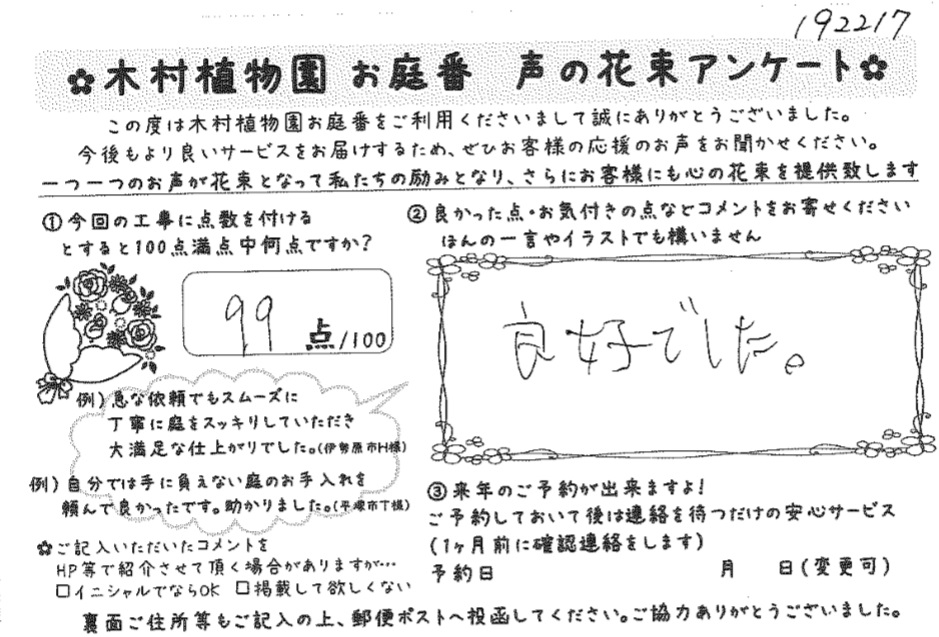 192217
✿木村植物園 お庭番 声の花束アンケート✿
この度は木村植物園お庭番をご利用くださいまして誠にありがとうございました。
今後もより良いサービスをお届けするため、ぜひお客様の応援のお声をお聞かせください。
一つ一つのお声が花束となって私たちの励みとなり、さらにお客様にも心の花束を提供致します
①今回の工事に点数を付ける
とすると100点満点中何点ですか?
99点/100
例)急な依頼でもスムーズに
丁寧に庭をスッキリしていただき
大満足な仕上がりでした。(伊勢原市H様)
例)自分では手に負えない庭のお手入れを
頼んで良かったです。助かりました。(平塚市T様)
✿ご記入いただいたコメントを
HP等で紹介させて頂く場合がありますが…
□イニシャルでならOK □掲載して欲しくない
②良かった点・お気付きの点などコメントをお寄せください
ほんの一言やイラストでも構いません
良好でした。
③来年のご予約が出来ますよ!
ご予約しておいて後は連絡を待つだけの安心サービス
(1ヶ月前に確認連絡をします)
予約日 月 日(変更可)
裏面ご住所等もご記入の上、郵便ポストへ投函してください。ご協力ありがとうございました。